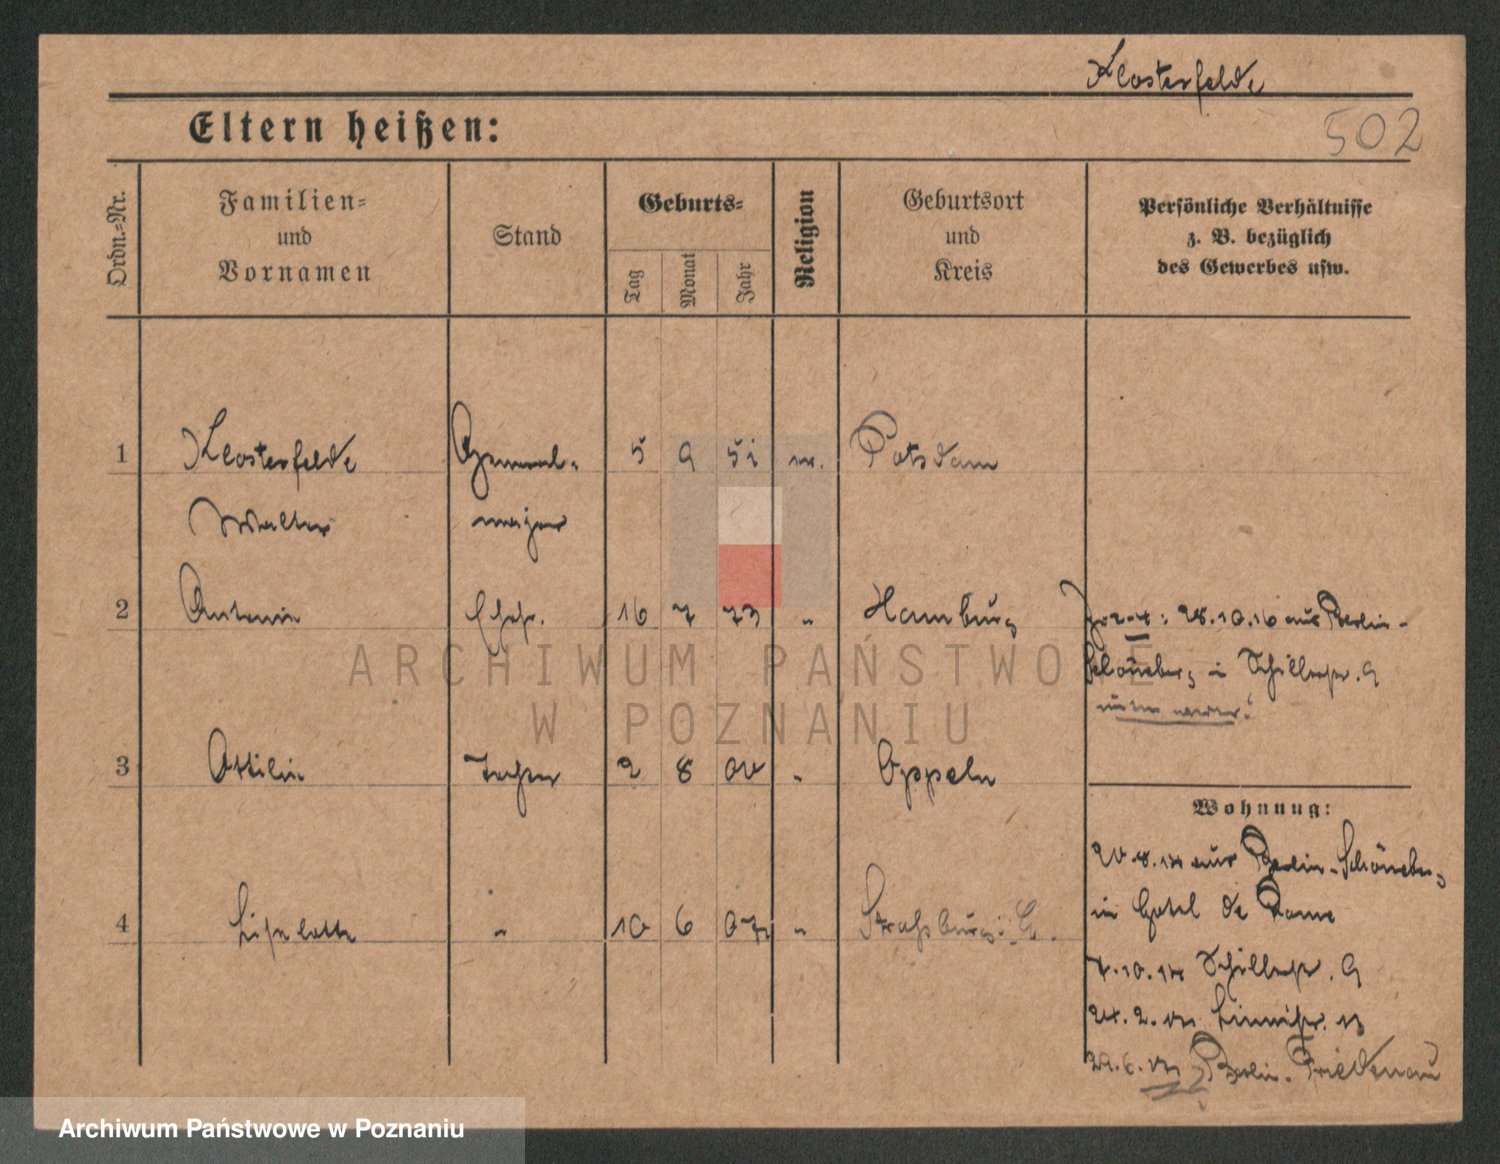 Klosterfelde
Eltern heißen:
502
Ordn.-Nr.
Familien-
und
Vornamen
Stand
Geburts-
Tag
Monat
Jahr
Religion
Geburtsort
und
Kreis
Persönliche Verhältnisse
z. B. bezüglich
des Gewerbes usw.
1 Klosterfelde General- 5 9 51 Potsdam
Walter major
2 Antonie Ehefr. 16 7 73 " Hamburg 28.10.16 aus Berlin-
Schöneberg in Schillerstr. 9
3 Ottilie Tochter 2 8 " Oppeln
Wohnung:
aus Berlin-Schöneberg
4 Liselotte " 10 6 " Straßburg i. E.
in Hotel de Rome
7.10.14 Schillerstr. 9
24.2. 13
Berlin-Friedenau
ARCHIWUM PAŃSTWOWE
W POZNANIU
Archiwum Państwowe w Poznaniu